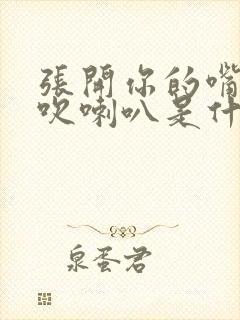 張開你的嘴
吹喇叭是什
泉蛋君